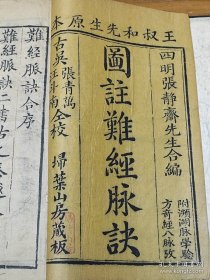 王叔和先生原本
四明張靜齋先生合編
附瀕湖脉學驗
方奇經脉攷
圖註難經脉訣
古吳張青萬
南仝校
掃葉山房藏板
難經脉訣合序
難經脉訣二書古之